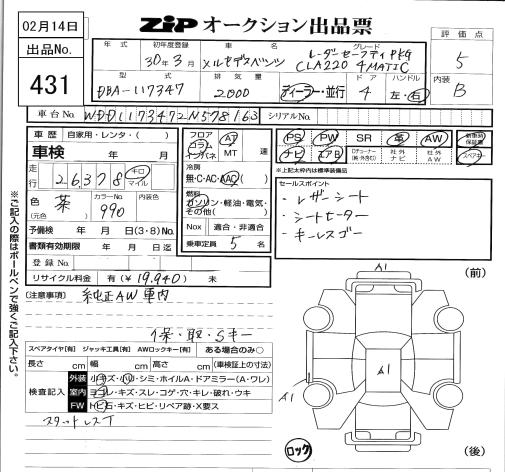 02月14日
ZIP オークション出品票
出品No.
431
年式
初年度登録
30年3月
車名
メルセデスベンツ
グレード
レーダーセーフティPKG
CLA220 4MATIC
評価点
5
型式
DBA-117347
排気量
2000
ディーラー・並行
ドア
4
ハンドル
左・右
内装
B
車台No.
WDD1173472N578163
シリアルNo.
車歴 自家用・レンタ・( )
車検 年 月
走行
26,378
キロ
マイル
色
(元色)
茶
カラーNo.
990
内装色
予備検 年 月 日(3・8)No.
書類有効期限 年 月 日迄
登録No.
リサイクル料金 有(¥19,940) 未
フロア
コラム
インパネ
AT
MT 速
冷房
無・C・AC・AAC
燃料
ガソリン・軽油・電気・
その他( )
Nox 適合・非適合
乗車定員 5 名
PS PW SR 革 AW 新車時保証書
ナビ エアB 社外ナビ 社外AW スペアキー
※上記太枠内は標準装備品
セールスポイント
・レザーシート
・シートヒーター
・キーレスゴー
(注意事項)
純正AW車内
保・取・Sキー
スペアタイヤ[有] ジャッキ工具[有] AWロックキー[有] ある場合のみ○
長さ cm 幅 cm 高さ cm (車検証上の寸法)
検査記入
外装 小キズ・小凹・シミ・ホイルA・ドアミラー(A・ワレ)
室内 ヨゴレ・キズ・スレ・コゲ・穴・キレ・破れ・ウキ
FW トビ石・キズ・ヒビ・リペア跡・X要ス
スタッドレスT
A1
(前)
A1
A1
ロック
(後)
※ご記入の際はボールペンで強くご記入下さい。